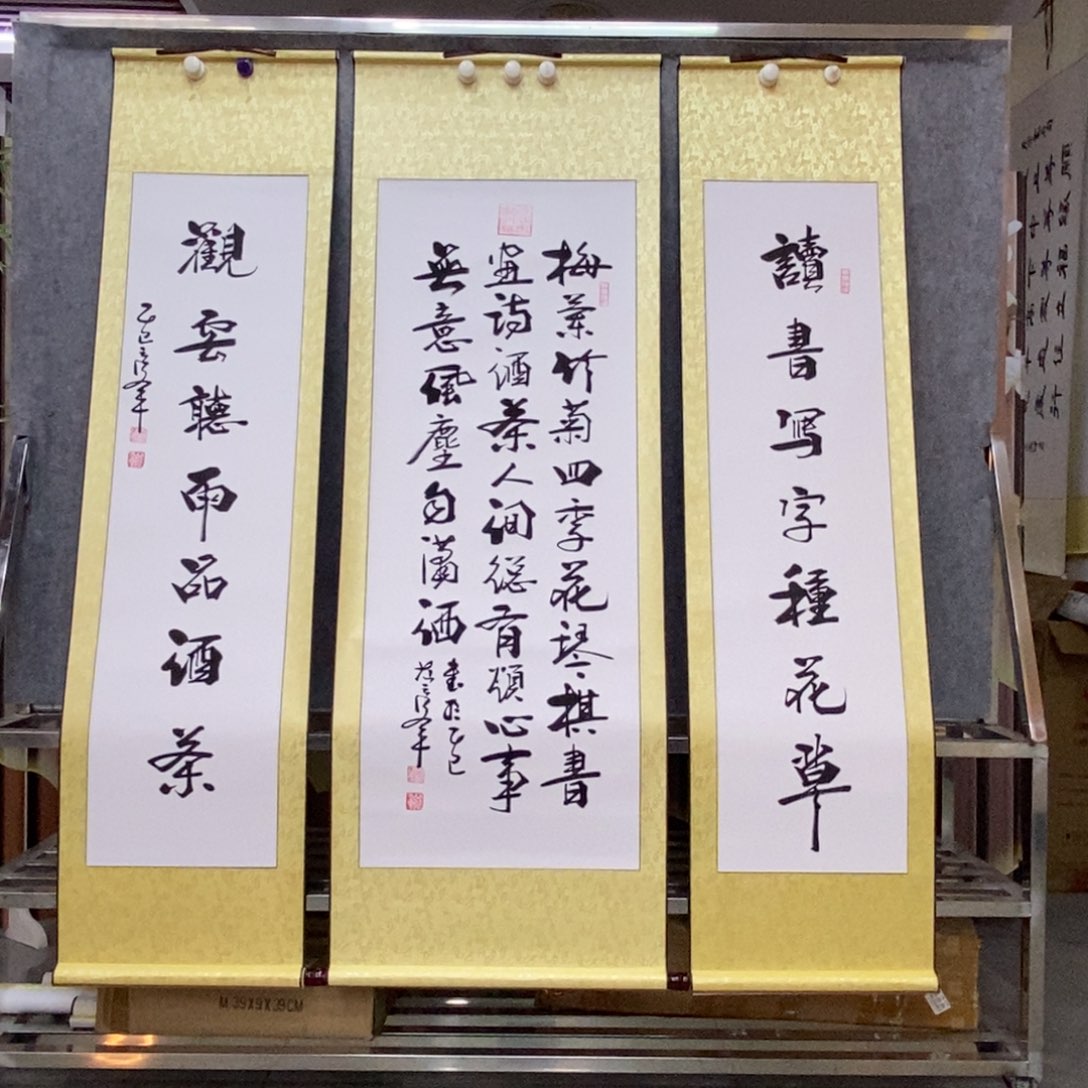 讀書写字種花草
梅蘭竹菊四季花琴棋書
畫詩酒茶人间總有煩心事
無意風塵自瀟洒
書於乙巳
觀雲聽雨品酒茶
乙巳